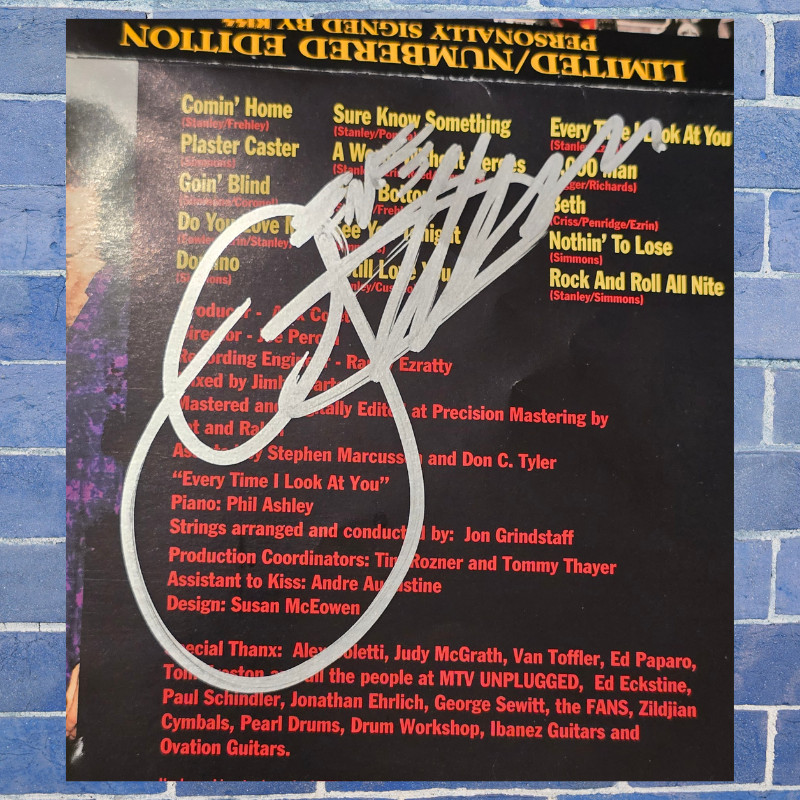 LIMITED/NUMBERED EDITION
PERSONALLY SIGNED BY KISS
Comin' Home
(Stanley/Frehley)
Plaster Caster
(Simmons)
Goin' Blind
(Simmons/Coronel)
Do You Love
Stanley)
Domino
(Simmons)
Sure Know Something
(Stanley/
A
Bottom
See You Tonight
Still Love You
Every Time I Look At You
(Stanley
2,000 Man
(Jagger/Richards)
Beth
(Criss/Penridge/Ezrin)
Nothin' To Lose
(Simmons)
Rock And Roll All Nite
(Stanley/Simmons)
Producer -
Director - Joe
Recording Engineer - Ezratty
Mixed by
Mastered and Digitally Edited at Precision Mastering by
and
Assisted by Stephen Marcussen and Don C. Tyler
“Every Time I Look At You”
Piano: Phil Ashley
Strings arranged and conducted by: Jon Grindstaff
Production Coordinators: Tim Rozner and Tommy Thayer
Assistant to Kiss: Andre Augustine
Design: Susan McEowen
Special Thanx: Alex Coletti, Judy McGrath, Van Toffler, Ed Paparo,
all the people at MTV UNPLUGGED, Ed Eckstine,
Paul Schindler, Jonathan Ehrlich, George Sewitt, the FANS, Zildjian
Cymbals, Pearl Drums, Drum Workshop, Ibanez Guitars and
Ovation Guitars.